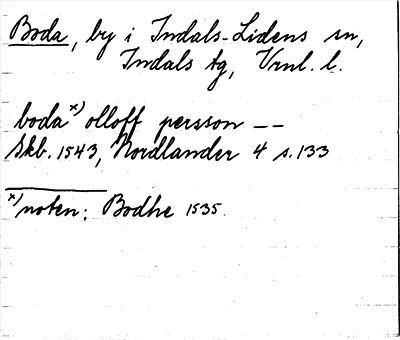 Boda, by i Indals-Lidens sn,
Indals tg, Vrnl. l.
boda x) olloff persson --
Skb. 1543, Nordlander 4 s. 133
x) noten: Bodhe 1535.